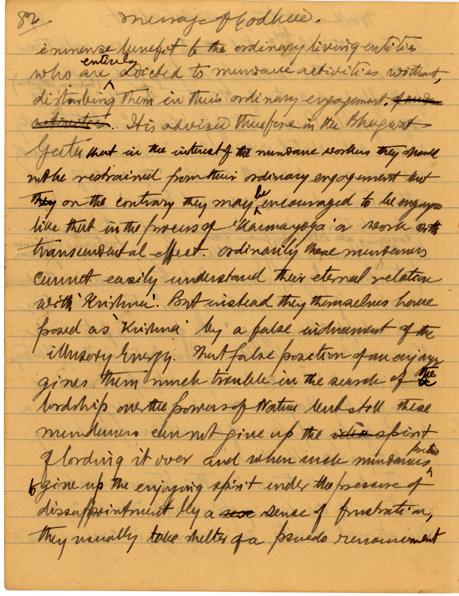 82 Message of Godhead.
immense benefit to the ordinary living entities
who are entirely adicted to mundane activities without,
distinbing them in their ordinary engagement.
activities. It is advised therefore in the Bhagwat
Geeta that in the interest of the mundane workers they should
not be restrained from their ordinary engagement but
they on the contrary they may be encouraged to be engaged
like that in the process of 'Karmayoga' or work with
transcendental effect. ordinarily these mundaners
cannot easily understand their eternal relation
with 'Krishna'. But instead they themselves have
posed as 'Krishna' by a false inducement of the
illusory Energy. That false position of an enjoyer
gives them much trouble in the search of the
lordship over the powers of Nature but still these
mundaners can not give up the idea spirit
of lording it over and when such mundaners
give up the enjoying spirit under the pressure of
dissappointment by a sense of frustration,
they usually take shelter of a psuedo renouncement